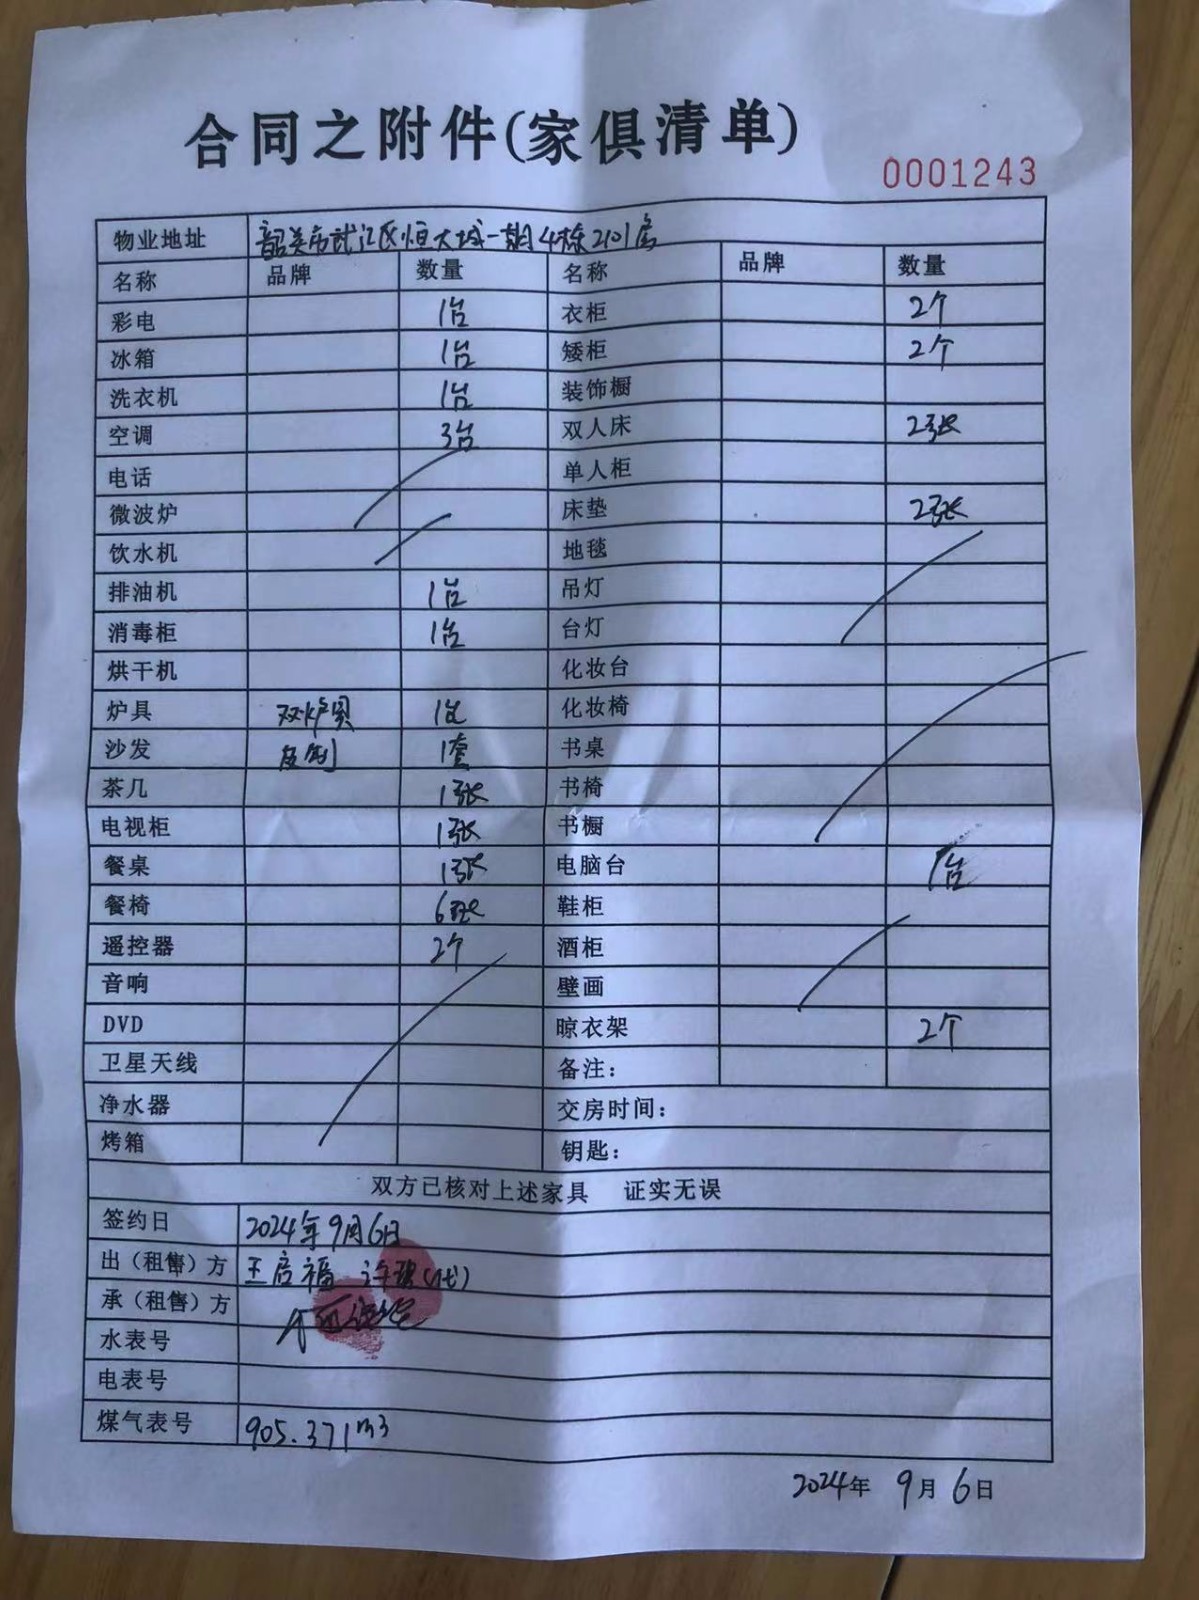 合同之附件(家俱清单)
0001243
物业地址 韶关市武江区恒大城一期4栋2101房
名称 品牌 数量 名称 品牌 数量
彩电 1台 衣柜 2个
冰箱 1台 矮柜 2个
洗衣机 1台 装饰橱
空调 3台 双人床 2张
电话 单人柜
微波炉 床垫 2张
饮水机 地毯
排油机 1台 吊灯
消毒柜 1台 台灯
烘干机 化妆台
炉具 双炉具 1台 化妆椅
沙发 皮制 1套 书桌
茶几 1张 书椅
电视柜 1张 书橱
餐桌 1张 电脑台 1台
餐椅 6张 鞋柜
遥控器 2个 酒柜
音响 壁画
DVD 晾衣架 2个
卫星天线 备注：
净水器 交房时间：
烤箱 钥匙：
双方已核对上述家具 证实无误
签约日 2024年9月6日
出（租售）方 王启福 许(代)
承（租售）方
水表号
电表号
煤气表号 905.371m3
2024年 9月 6日